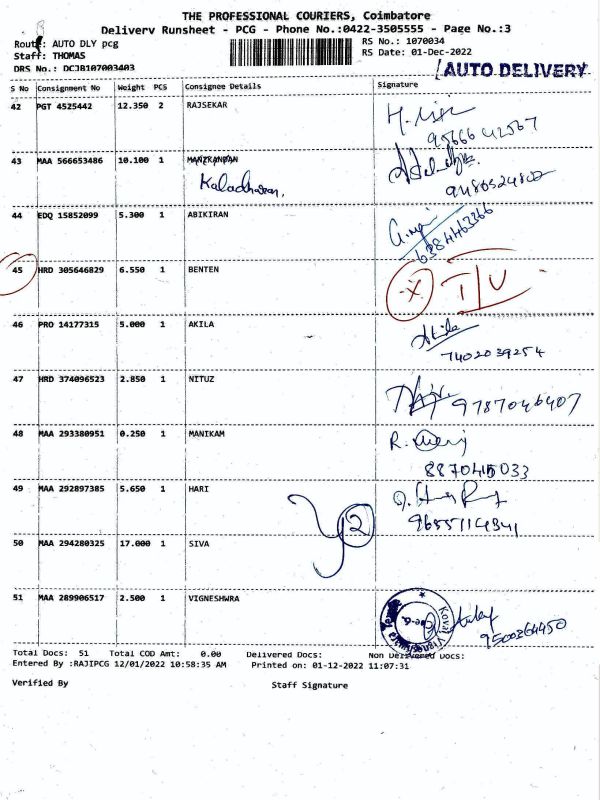 THE PROFESSIONAL COURIERS, Coimbatore
Delivery Runsheet - PCG - Phone No.:0422-3505555 - Page No.:3
Route: AUTO DLY pcg
RS No.: 1070034
Staff: THOMAS
RS Date: 01-Dec-2022
DRS No.: DCJB107003403
AUTO DELIVERY
S No Consignment No Weight PCS Consignee Details Signature
42 PGT 4525442 12.350 2 RAJSEKAR
43 MAA 566653486 10.100 1 MANIKANDAN
Kaladharan,
44 EDQ 15852099 5.300 1 ABIKIRAN
6384463366
45 HRD 305646829 6.550 1 BENTEN X T/U
46 PRO 14177315 5.000 1 AKILA Akila
7402039254
47 HRD 374096523 2.850 1 NITUZ 9787046407
48 MAA 293380951 0.250 1 MANIKAM
8870415033
49 MAA 292897385 5.650 1 HARI
2
50 MAA 294280325 17.000 1 SIVA
51 MAA 289906517 2.500 1 VIGNESHWRA
9500364450
Total Docs: 51 Total COD Amt: 0.00 Delivered Docs: Non Delivered Docs:
Entered By :RAJIPCG 12/01/2022 10:58:35 AM Printed on: 01-12-2022 11:07:31
Verified By Staff Signature